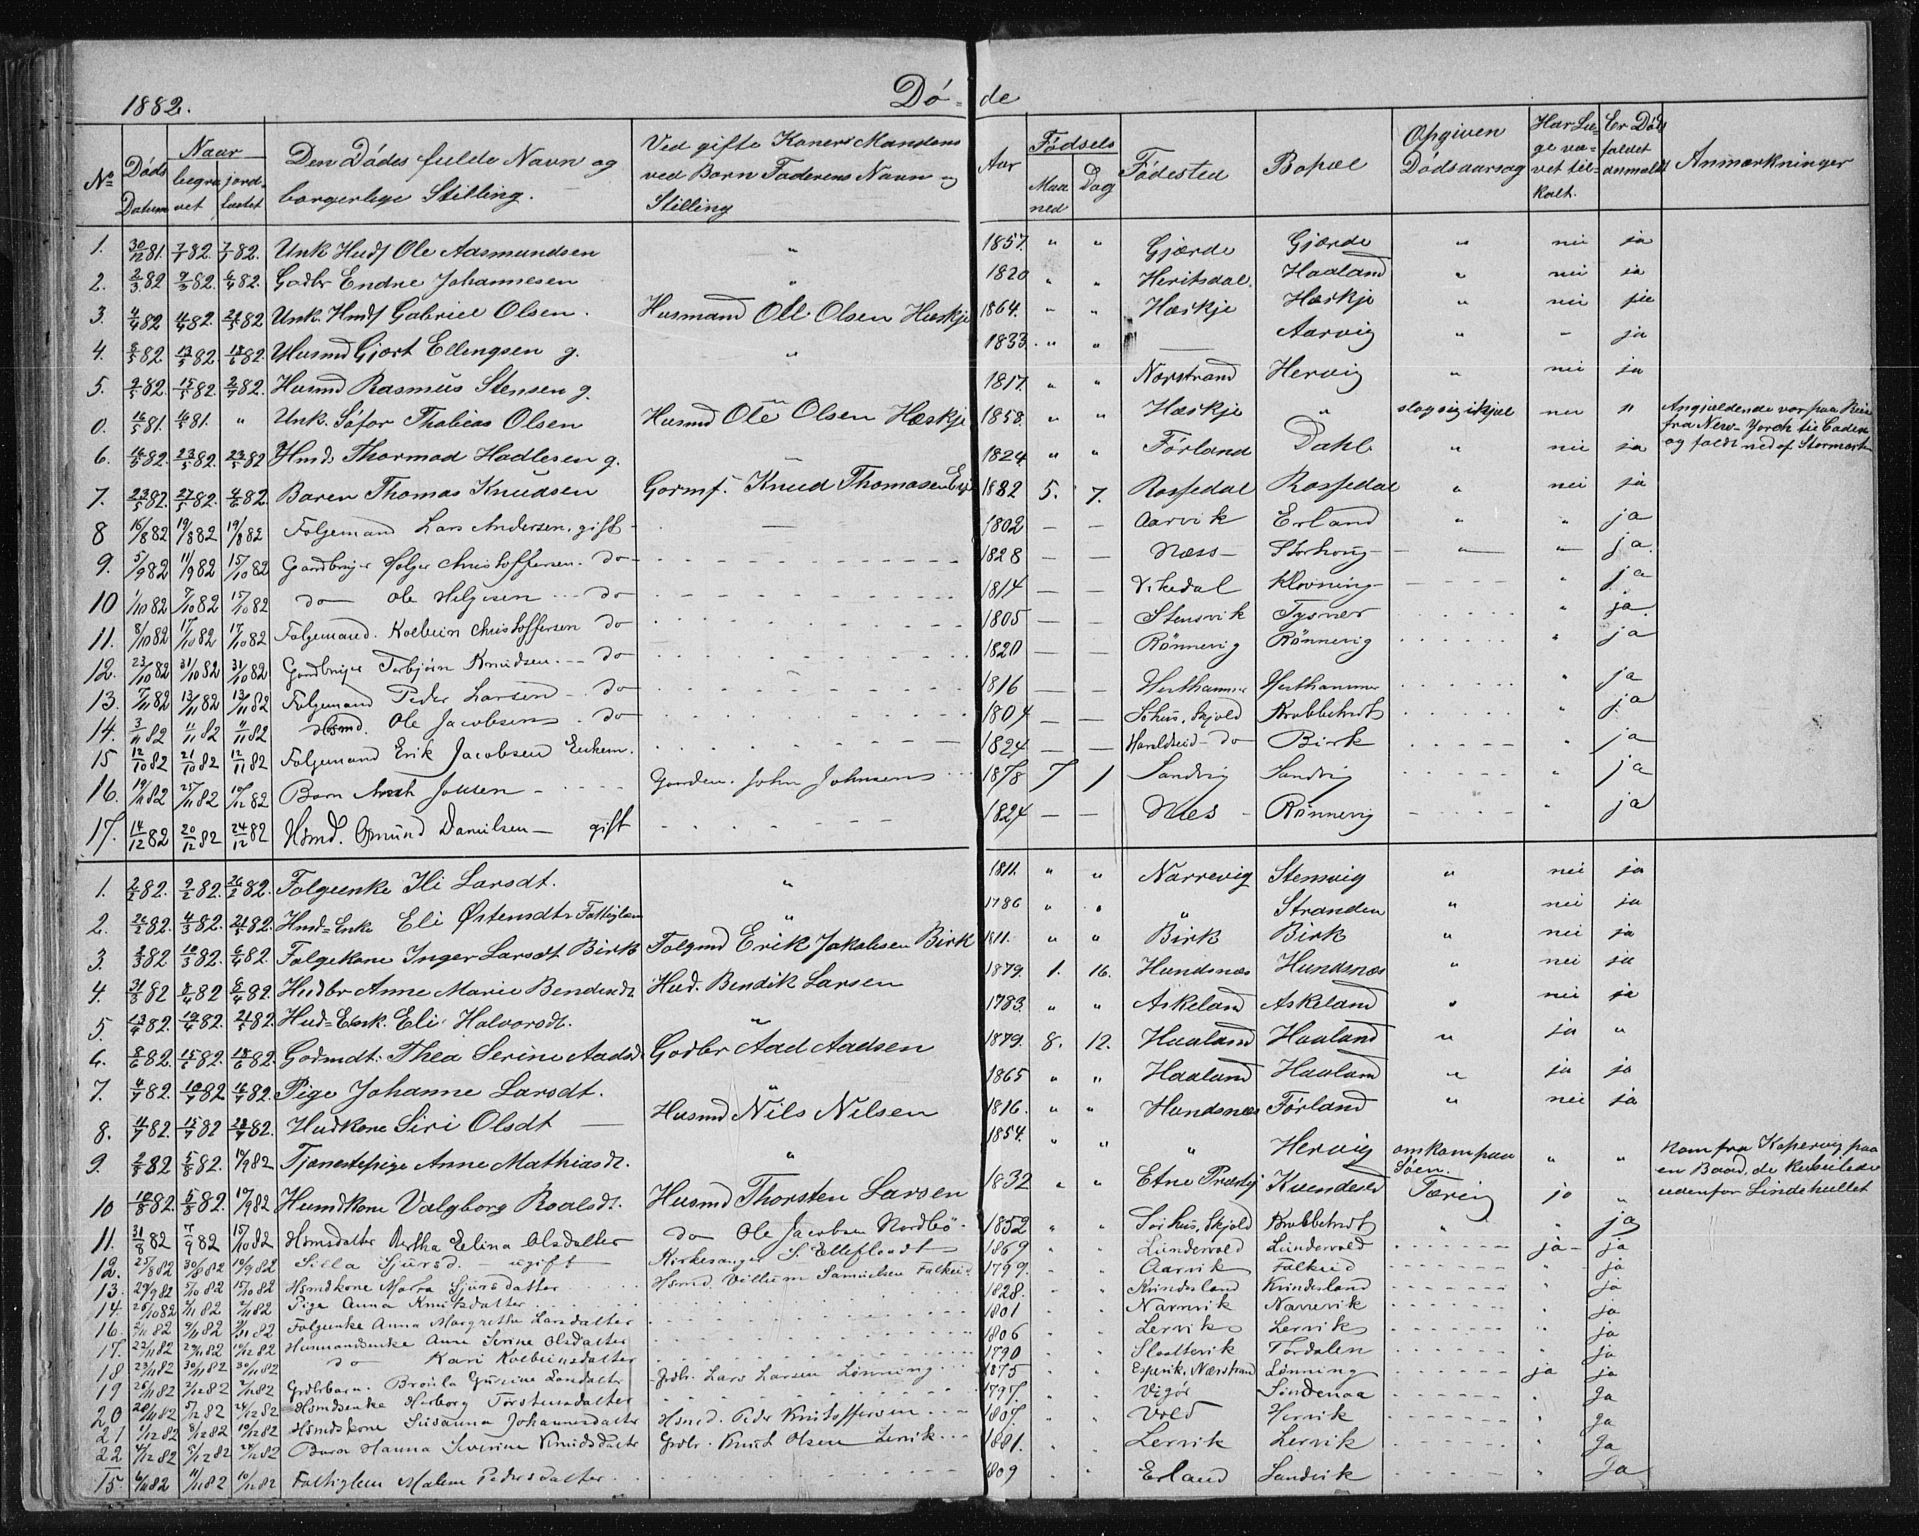 1882. Dø- de
No Døds Datum Naar begra vet jord fæstet Den Dødes fulde Navn og borgerlige Stilling. Ved gifte Koners Mandens ved Børn Faderens Navn og Stilling Aar Fødsels Maa ned Dag Fødested Bopæl Opgiven Dødsaarsag Har Læ- ge væ- vet til- kaldt. Er Døds faldet anmeldt Anmærkninger
1. 30/12 81. 7/1 82. 7/5 82. Unk Huds Ole Aasmundsen " 1857. " " Gjærde Gjærde " nei ja
2. 2/3 82 9/3 82. 6/4 82. Gdbr Endre Johannesen " 1820 " " Heritsdal. Haaland " nei ja
3. 4/4 82 11/4 82. 21/5 82 Unk. Hmds Gabriel Olsen. Husmand Ole Olsen Hæskje 1864. " " Hæskje Hæskje " nei ja
4. 8/5 82 13/5 82. 18/6 82. Husmd Gjert Ellingsen g. " 1833. " " — Aarvig " - ja
5. 9/5 82. 15/5 82. 2/7 82. Husmd Rasmus Stensen g. 1817. " " Norstrand Hervig " nei ja
0. 16/5 81. 4/6 81. " Unk. Søfar Thobias Olsen Husmd Ole Olsen Hæskje 1858. " " Hæskje " slog sig ihjel nei " Angjældende var paa Reise fra New-Yorck til Cadix og faldt ned af Stormasten
6. 16/5 82. 23/5 82. 23/5 82 Hmds Thormod Hadlesen g. 1824 " " Førland Dahl " nei ja
7. 23/5 82. 27/5 82. 4/6 82. Baren Thomas Knudsen Gormf. Knud Thomasen 1882 5. 7. Rossedal Rossedal " nei ja
8 16/8 82 19/8 82 19/8 82 Folgemand Lars Andersen, gift — 1802 — — Aarvik Erland " " ja
9. 5/9 82 11/9 82 15/10 82 Gaardbruger Holger Christoffersen. do 1828 — — Næss Storhoug " " ja.
10 1/10 82 7/10 82 15/10 82 do Ole Helgesen do 1814 — — Vikedal Klovning " ja
11. 8/10 82 17/10 82 17/10 82 Folgemand. Kolbein Christoffersen do 1805 — — Stensvik Tysvær " ja.
12. 23/10 82 31/10 82 31/10 82 Gardbruger Torbjørn Knudsen do 1820 — — Rønnevig Rønnevig " ja
13. 7/11 82 13/11 82 13/11 82 Folgemand Peder Larsen do 1816 — — Hesthammer Hesthammer " ja
14. 3/11 82 11/11 82 11/11 82 Hsmd. Ole Jacobsen do 1804 — — Sohus, Skjold Krabbetvedt " ja
15 12/10 82 21/10 82 12/11 82 Folgemand Erik Jacobsen Enkem. 1824 — — Haraldseid do Birk " ja
16. 19/11 82 25/11 82 10/12 82 Barn Johsen Garden. John Johnsen 1878 7 1 Sandvig Sandvig " ja
17. 14/12 82 20/12 82 24/12 82 Hsmd. Osmund Danielsen gift 1824 — — Næs Rønnevig " ja
1. 2/2 82. 9/2 82. 26/2 82. Folgeenke Ili Larsdt. " 1811. " " Narrevig Stensvig " nei ja
2. 22/2 82. 4/3 82. 21/4 82. Hmd=Enke Eli Østensdt Fattiglem " 1786 " " " Stranden " nei ja
3. 2/3 82 10/3 82. 6/4 82. Folgekone Inger Larsdt Birk Folgmd Erik Jakobsen Birk 1811. " " Birk Birk " nei ja
4. 31/3 82 8/4 82 6/4 82. Hudbr Anne Marie Bendiksdt Hud. Bendik Larsen 1879. 1. 16. Hundsnæs Hundsnæs " nei ja
5. 13/4 82. 19/4 82. 21/5 82. Hud=Enk. Eli Halvorsdt. " 1783. " " Askeland Askeland " nei ja
6. 8/6 82. 15/6 82. 18/6 82. Godmdt. Thea Serine Aadsd Godbr Aad Aadsen 1879. 8. 12. Haaland Haaland " ja "
7. 4/7 82. 10/7 82 16/7 82. Pige Johanne Larsdt. " 1865 " " Haaland Haaland " ja ja
8. 11/7 82. 15/7 82 23/7 82. Hudkone Siri Olsdt — Husmd Nils Nilsen 1816. " " Hundsnæs Førland " nei ja
9. 2/8 82 5/8 82. 10/9 82 Tjenestepige Anne Mathiasdt. " 1854. " " " Hervig omkom paa Søen. " " Kom fra Kopervig paa en Baad, de kuseilede udenfor Lindehullet
10 18/8 82. 5/8 82. 17/9 82 Husmdkone Valgborg Roalsdt. Husmd Thorsten Larsen 1832 " " Etne Præstgj Kuendesed Tærig jo "
11. 31/8 82 7/9 82 15/10 82 Hsmdsdatter Bertha Eelina Olsdatter do Ole Jacobsen Nordbø 1852 " " Sørhus, Skjold Krabbetvedt " " ja
12. 25/8 82 30/8 82 10/9 82 Silla Sjursd. — ugift — Kirkesanger S. Elleflaadt 1869 " " Lundervold Lundervold ja ja
13. 29/9 82 5/10 82 15/10 82 Hsmdkone Marta Sjursdatter Hsmd. Villum Samuelsen Falkeid 1799. " " Aarvik Falkeid " ja
14. 25/10 82 2/11 82 2/11 82 Pige Anna Knutsdatter 1828. " " Kvindesland Kvindesland " ja
16. 2/11 82 9/11 82 7/11 82 Folgeenke Anna Margrethe Larsdatter 1801 " " Narrevik Narrevik " ja
17. 22/11 82 29/11 82 10/12 82 Husmandsenke Anne Serine Olsdatter 1806 " " Lervik Lervik " ja
18 23/11 82 30/11 82 30/11 82 do Kari Kolbeinsdatter 1790 " " Slaattevik Fordalen " ja
19 26/11 82 2/12 82 2/12 82 Grdbrbarn. Gurine Larsdatter Grdbr. Lars Larsen Lønning 1875 " " Espevik, Nærstrand Lønning ja ja
20 29/11 82 5/12 82 24/12 82 Hsmdsenke Herborg Torstensdatter 1797. " " Vigør Søndenaa " Ja
21 1/12 82 8/12 82 10/12 82 Hsmdskone Susanna Johannesdatter Hsmd. Peder Knutoffersen 1807. " " Vold Hervik " Ja
22 4/12 82 5/12 82 24/12 82 Barn Hanna Severine Knudsdatter Grdbr. Knut Olsen Lervik 1881. " " Lervik Lervik " Ja
15 6/11 82 11/11 82 10/12 82 Fattiglem Malene Pedersdatter 1809 " Erland Sandvik " Ja